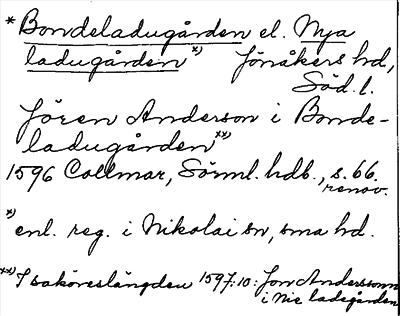 * Bondeladugården el. Nya
ladugården *) Jönåkers hd,
Söd. l.
Jören Anderson i Bonde-
ladugården **)
1596 Collmar, Sörml. hdb., s. 66.
renov.
*) enl. reg. i Nikolai sn, sma hd.
**) I saköreslängden 1597:10: Jon Andersson
i Nie ladegården